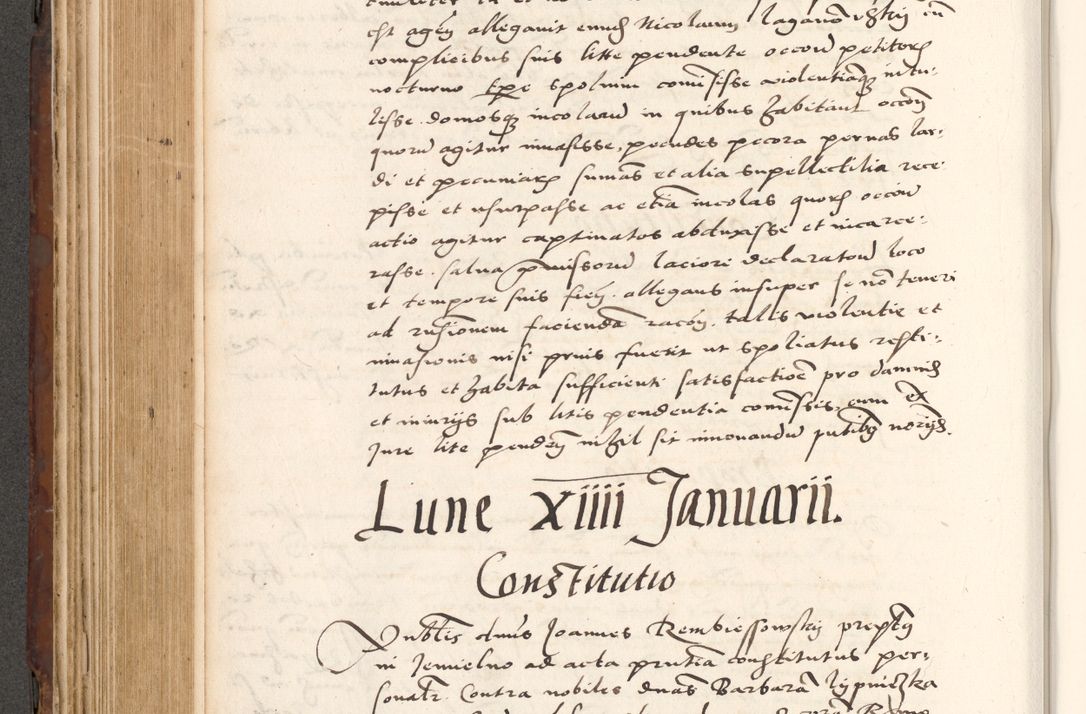 est agen allegavit eundem Nicolaum
complicibus suis lite pendente occoru petitorum
nocturno tempore spolium comisisse violentiamque intu-
lisse domosque incolarum in quibus habitant occoru
quoru agitur invasisse, pecudes pecora pernas lar-
di et pecuniarum sumas et alia supellectilia rece-
pisse et usurpasse ac etiam incolas quorum occoru
actio agitur captivatos abduxisse et incarce-
rasse. salva praemissoru laciore declaratou loco
et tempore suis fien. allegans insuper se non teneri
ad rusionem faciendam racon. talis violentie et
invasionis nisi prius fuerit ut spoliatus resti-
tutus et habita sufficienti satisfactione pro damnis
et iniuriis sub litis pendentia comissis, cum ex
Jure lite penden nihil sit innovandu putibus norijs.
Lune XIIII Januarii.
Constitutio
dnus Joannes Rembiessowsky
in Jemielno ad acta prutia constitutus per-
sonalr. Contra nobiles dnas Barbaram